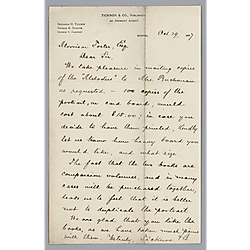 TICKNOR & CO., Publishers
BENJAMIN H. TICKNOR
THOMAS B. TICKNOR
GEORGE F. GODFREY
BOSTON, Oct 29, 1887
Morrison Foster, Esq
Dear Sir
We take pleasure in mailing copies
of the "Melodies" to Mrs. Buchanan
as requested - 100 copies of the
portrait, on card board, would
cost about $15.00; in case you
decide to have them printed, kindly
let us know how heavy board you
would like, and what size
The fact that the two books are
companion volumes, and in many
cases will be purchased together,
leads us to feel that it is better
not to duplicate the portrait
We are glad that you like the
books, as we have taken much pains
with them